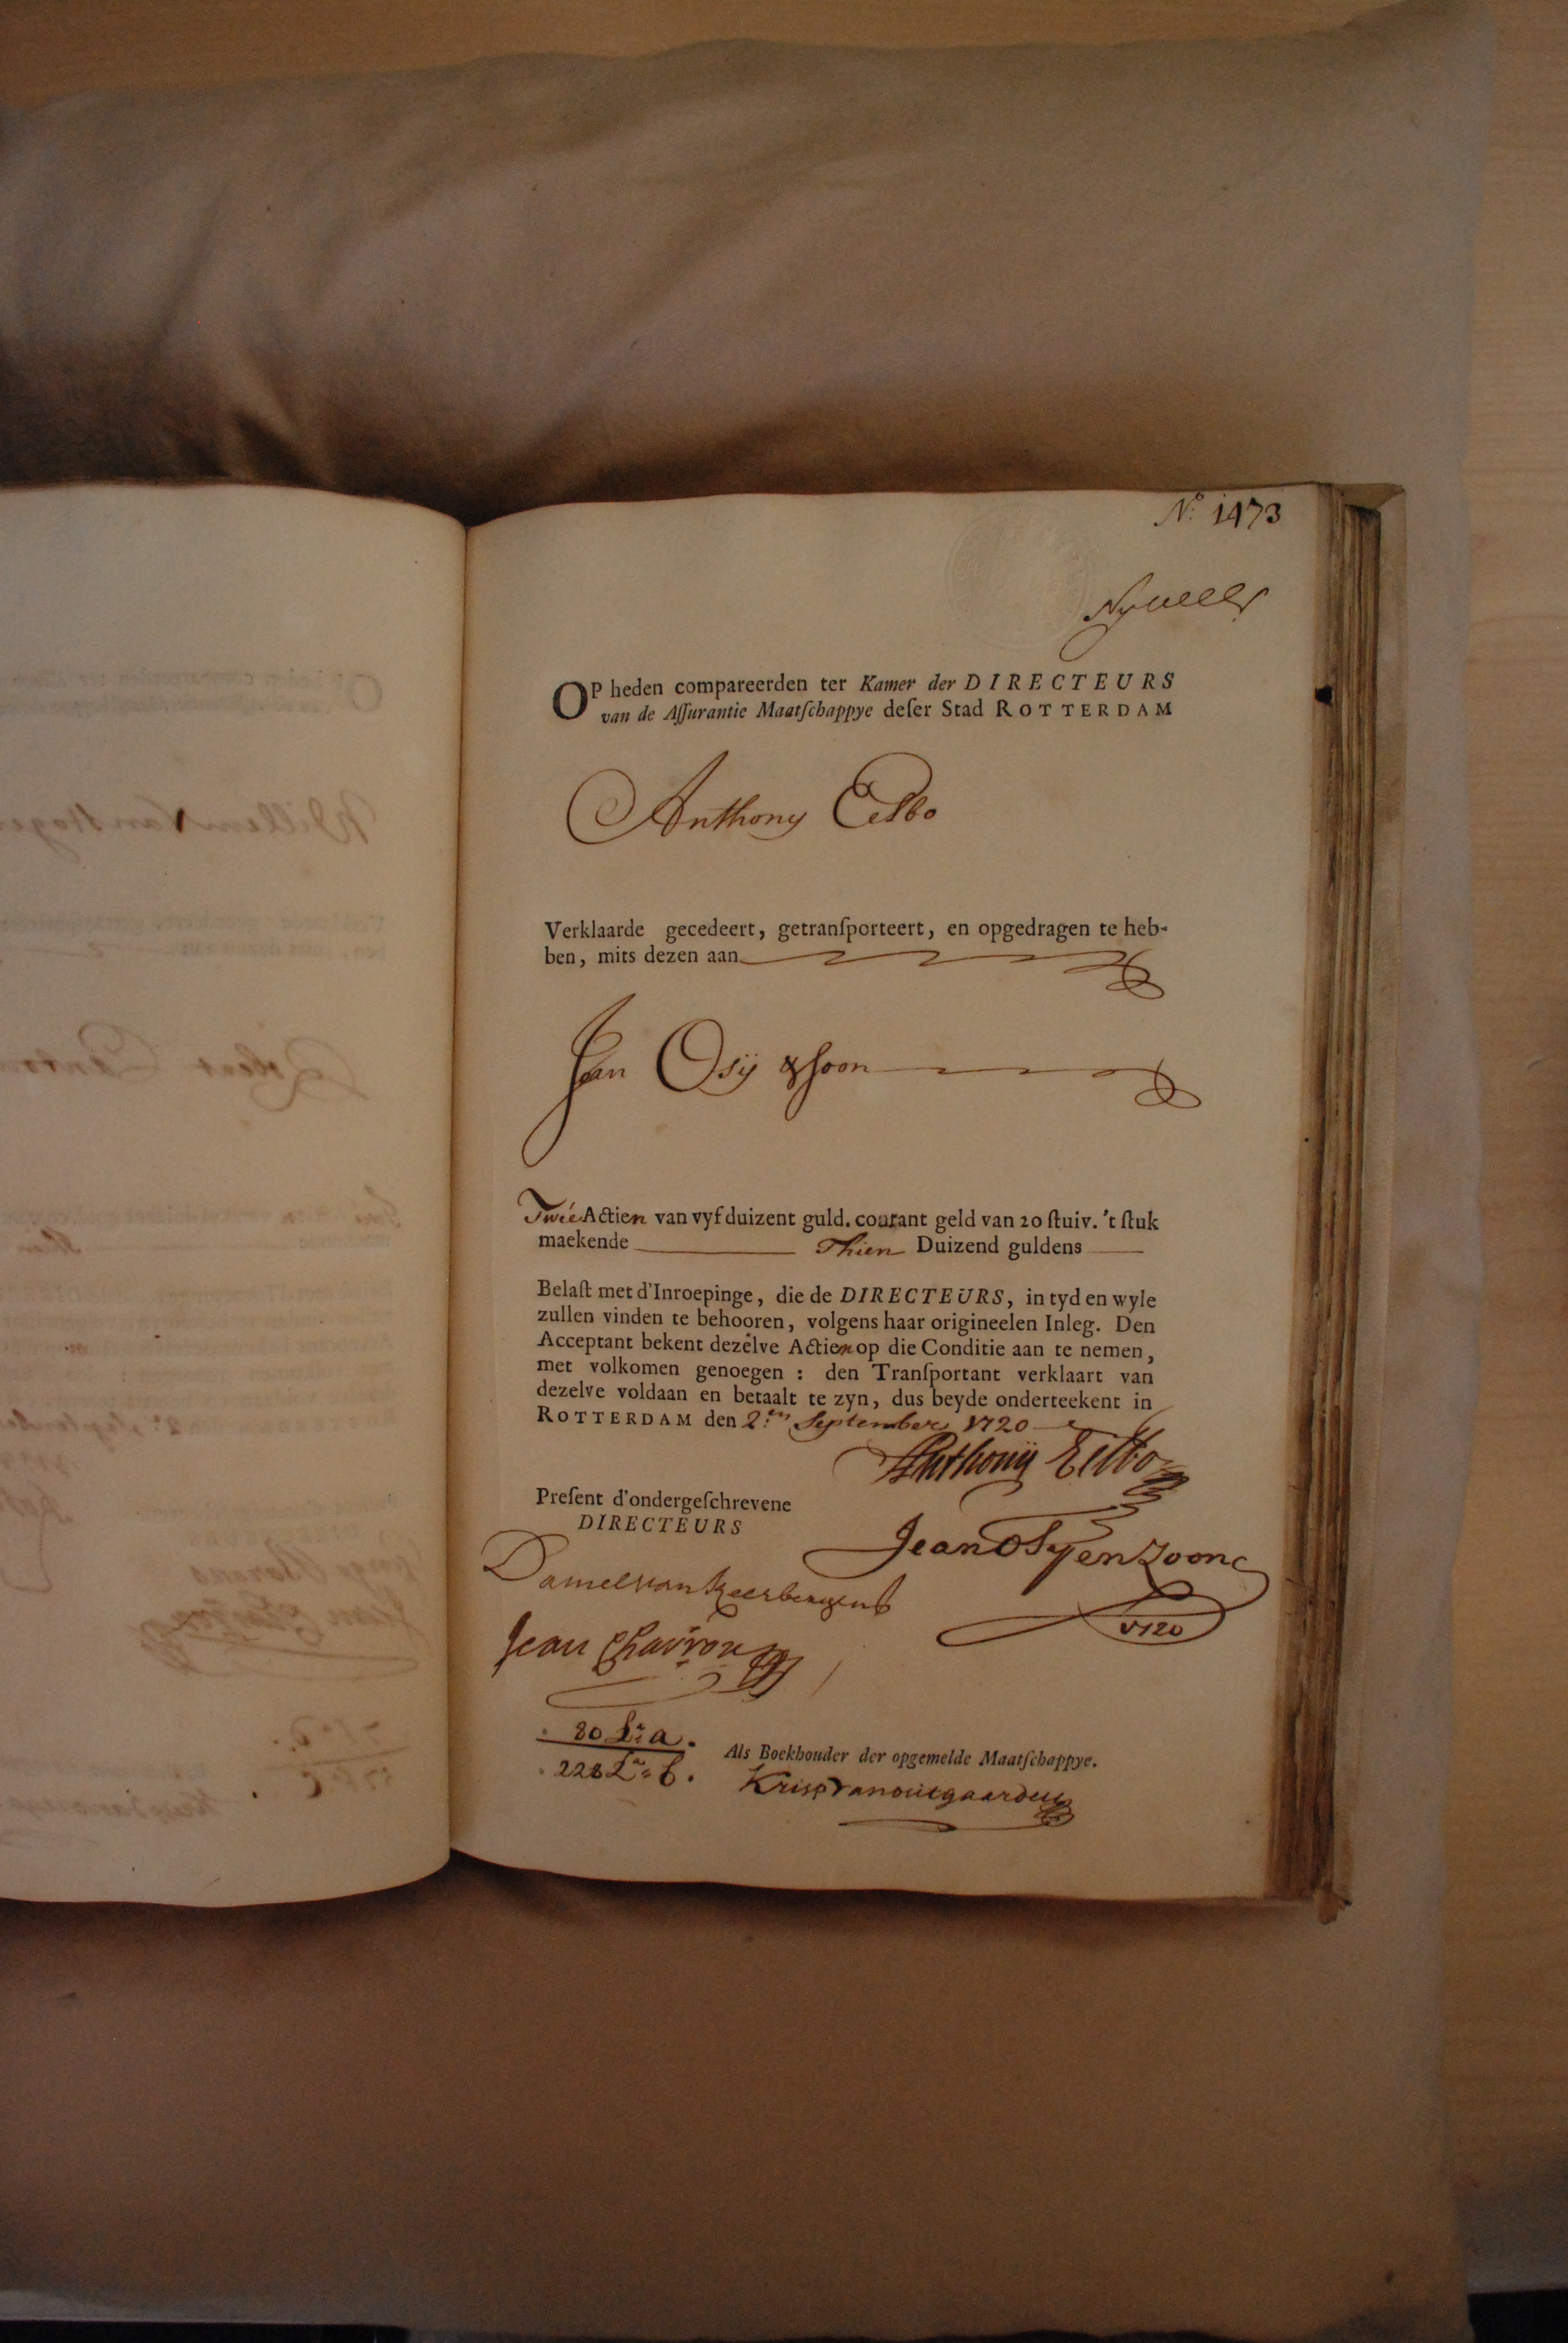 No. 1473
OP heden compareerden ter Kamer der DIRECTEURS
van de Aſſurantie Maatſchappye deſer Stad ROTTERDAM
Anthony Eelbo
Verklaarde gecedeert, getranſporteert, en opgedragen te heb-
ben, mits dezen aan
Jan Osÿ & Soon
Twee Actien van vyf duizent guld. courant geld van 20 ſtuiv. 't ſtuk
maekende Thien Duizend guldens
Belaſt met d'Inroepinge, die de DIRECTEURS, in tyd en wyle
zullen vinden te behooren, volgens haar origineelen Inleg. Den
Acceptant bekent dezelve Actien op die Conditie aan te nemen,
met volkomen genoegen : den Tranſportant verklaart van
dezelve voldaan en betaalt te zyn, dus beyde onderteekent in
ROTTERDAM den 2en September 1720
Anthonÿ Eelbo
Preſent d'ondergeſchrevene
DIRECTEURS
Jean Osy en Zoon
1720
Daniel van Keerbergen
Jean Chavron
80 Lra a.
228 Lra b.
Als Boekhouder der opgemelde Maatſchappye.
Krisp van outgaarden